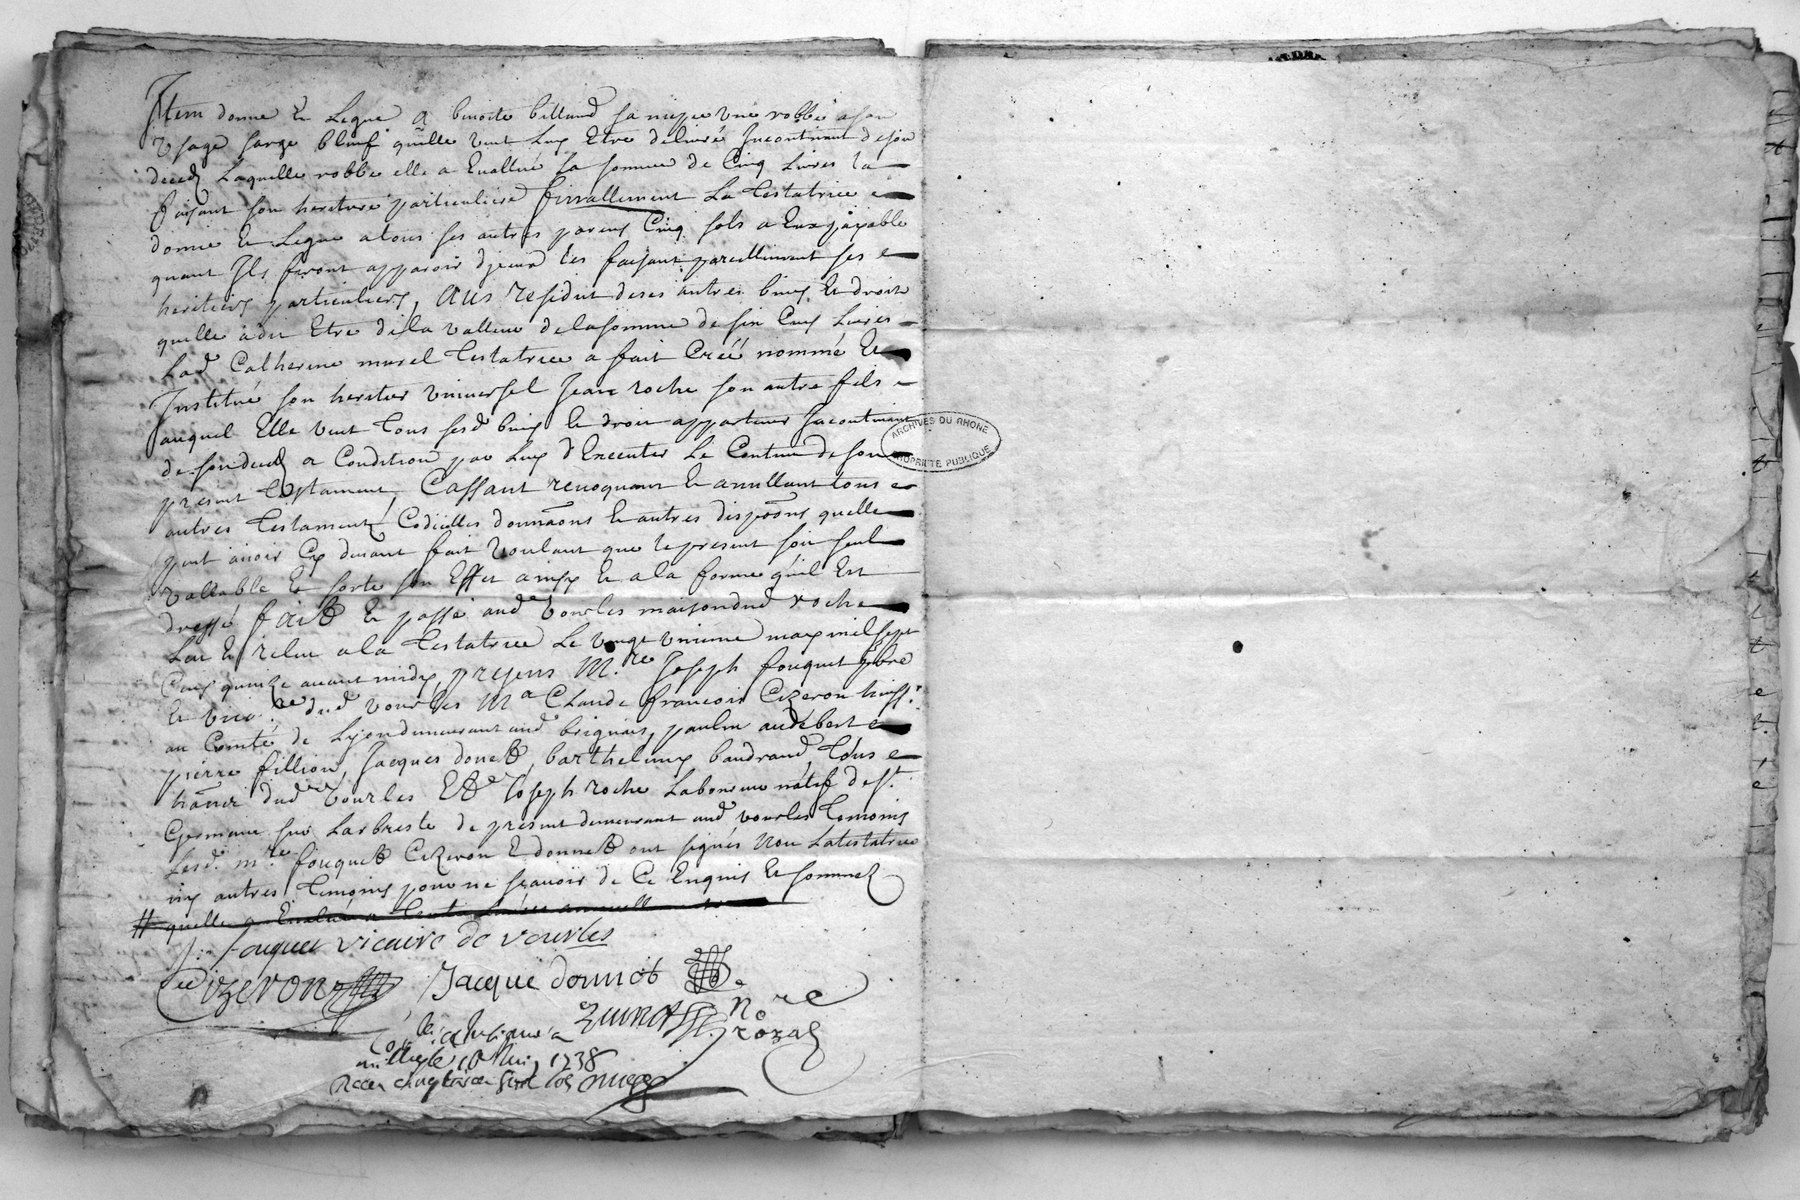 Item donne & Legue a benoite billand sa niepce une robbe a son
usage sarge bleuf quelle veut Luy Etre delivré Incontinant de son
deced laquelle robbe elle a Evallué La somme de Cinq Livres la
faisant son heritiere particuliere finallement La testatrice
donne & Legue a tous ses autres parens Cinq sols a Eux payable
quant Ils feront apparoir diceux les faisant pareillement ses
heritiers particuliers, aus residut de ses autres biens & droits
quelle a dit Etre de la valleur de la somme de Livres
Lad Catherine murel testatrice a fait Créé nommé &
Institué son heritier universel Jean roche son autre fils
auquel Elle veut tous sesd biens & droits appartenir Incontinant
de son deced a Condition par Luy d'Executer Le Contenu de son
present testament, Cassant revoquant & annullant tous
autres testament Codicilles donnaons & autres dispoons quelle
peut avoir Cy devant fait voulant que le present soit seul
vallable & sorte son Effet ainsy & a la forme quil Est
dressé fait & passé aud vourles maison dud roche
Leu & releu a la testatrice Le vingt unieme may mil sept
Cens quinze avant midy, presens Mre Joseph fouquet pbre
& vicaire dud vourles Me Claude francois Cizeron huissr
au Comté de Lyon demeurant aud brignais, paulin audebert
pierre fillion, Jacques donet, barthelemy baudrand, tous
dud vourles Et Joseph roche Laboureur natif de St
Germain sur Larbresle de present demeurant aud vourles temoins
Lesd mre fouquet Cizeron & donnet ont signés Non La testatrice
ny autres temoins pour ne scavoir de Ce Enquis & sommez
# quelle a Evalué a
fouquet vicaire de vourles
Cizeron Jacque donnet
nre
rozat
1738